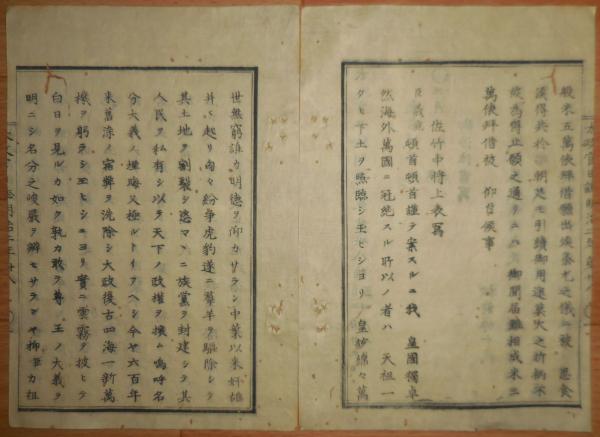 穀米五萬俵拝借願出候
候得共於 朝廷モ引續御用途莫大之折柄不
被為得止願之通ニハ 御聞届難相成米三
萬俵拝借被 仰出候事
佐竹中将上表冩
臣義堯頓首頓首謹テ案スルニ我 皇國獨卓
然海外萬國ニ冠絶スル所以ノ者ハ 天祖一
タヒ下土ヲ照臨シ玉ヒシヨリ 皇紗綿々萬
世無窮誰カ明德ヲ仰カサラン中葉以来奸雄
並ヒ起リ肉々紛爭虎豹遂ニ羣羊ヲ驅除シテ
其土地ヲ割裂シ恣マヽニ族黨ヲ封建シテ其
人民ヲ私有シ以テ天下ノ政権ヲ攘ム嗚呼名
分大義ノ堙晦又極ルトイフヘシ今ヤ六百年
来舊染ノ宿弊ヲ洗除シ大政復古四海一新萬
機ヲ躬ラシ玉ヒシヨリ實ニ雲霧ヲ披ヒテ
白日ヲ見ルカ如ク孰カ敢テ尊 王ノ大義ヲ
明ニシ名分之峻嚴ヲ辨セサランヤ抑臣カ祖